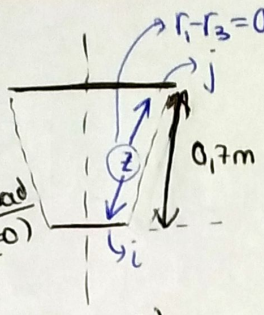 r₁-r₃=0
j
z
0,7m
ad
0)
i